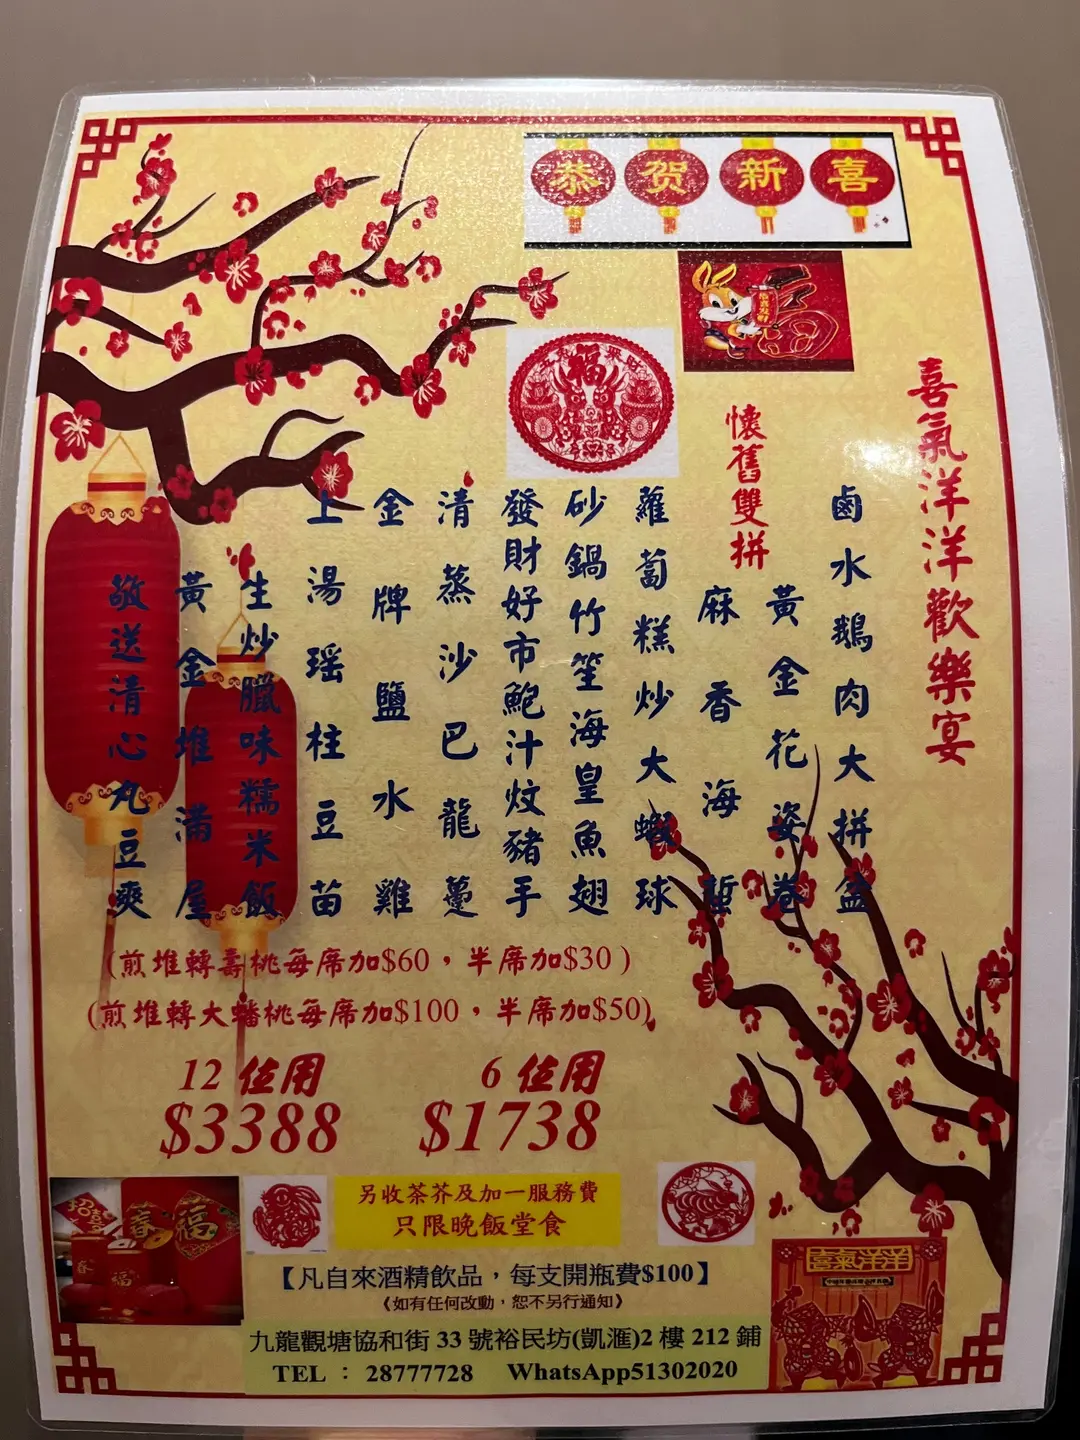 恭贺新喜
喜氣洋洋歡樂宴
鹵水鵝肉大拼盆
懷舊雙拼
黃金花姿卷
麻香海蜇
蘿蔔糕炒大蝦球
砂鍋竹笙海皇魚翅
發財好市鮑汁炆豬手
清蒸沙巴龍躉
金牌鹽水雞
上湯瑶柱豆苗
生炒臘味糯米飯
黃金堆滿屋
敬送清心丸豆爽
(煎堆轉壽桃每席加$60，半席加$30)
(煎堆轉大蟠桃每席加$100，半席加$50)
12 位用 6 位用
$3388 $1738
另收茶芥及加一服務費
只限晚飯堂食
【凡自來酒精飲品，每支開瓶費$100】
《如有任何改動，恕不另行通知》
九龍觀塘協和街 33 號裕民坊(凱滙)2 樓 212 鋪
TEL ： 28777728 WhatsApp51302020
福
春
福
喜氣洋洋